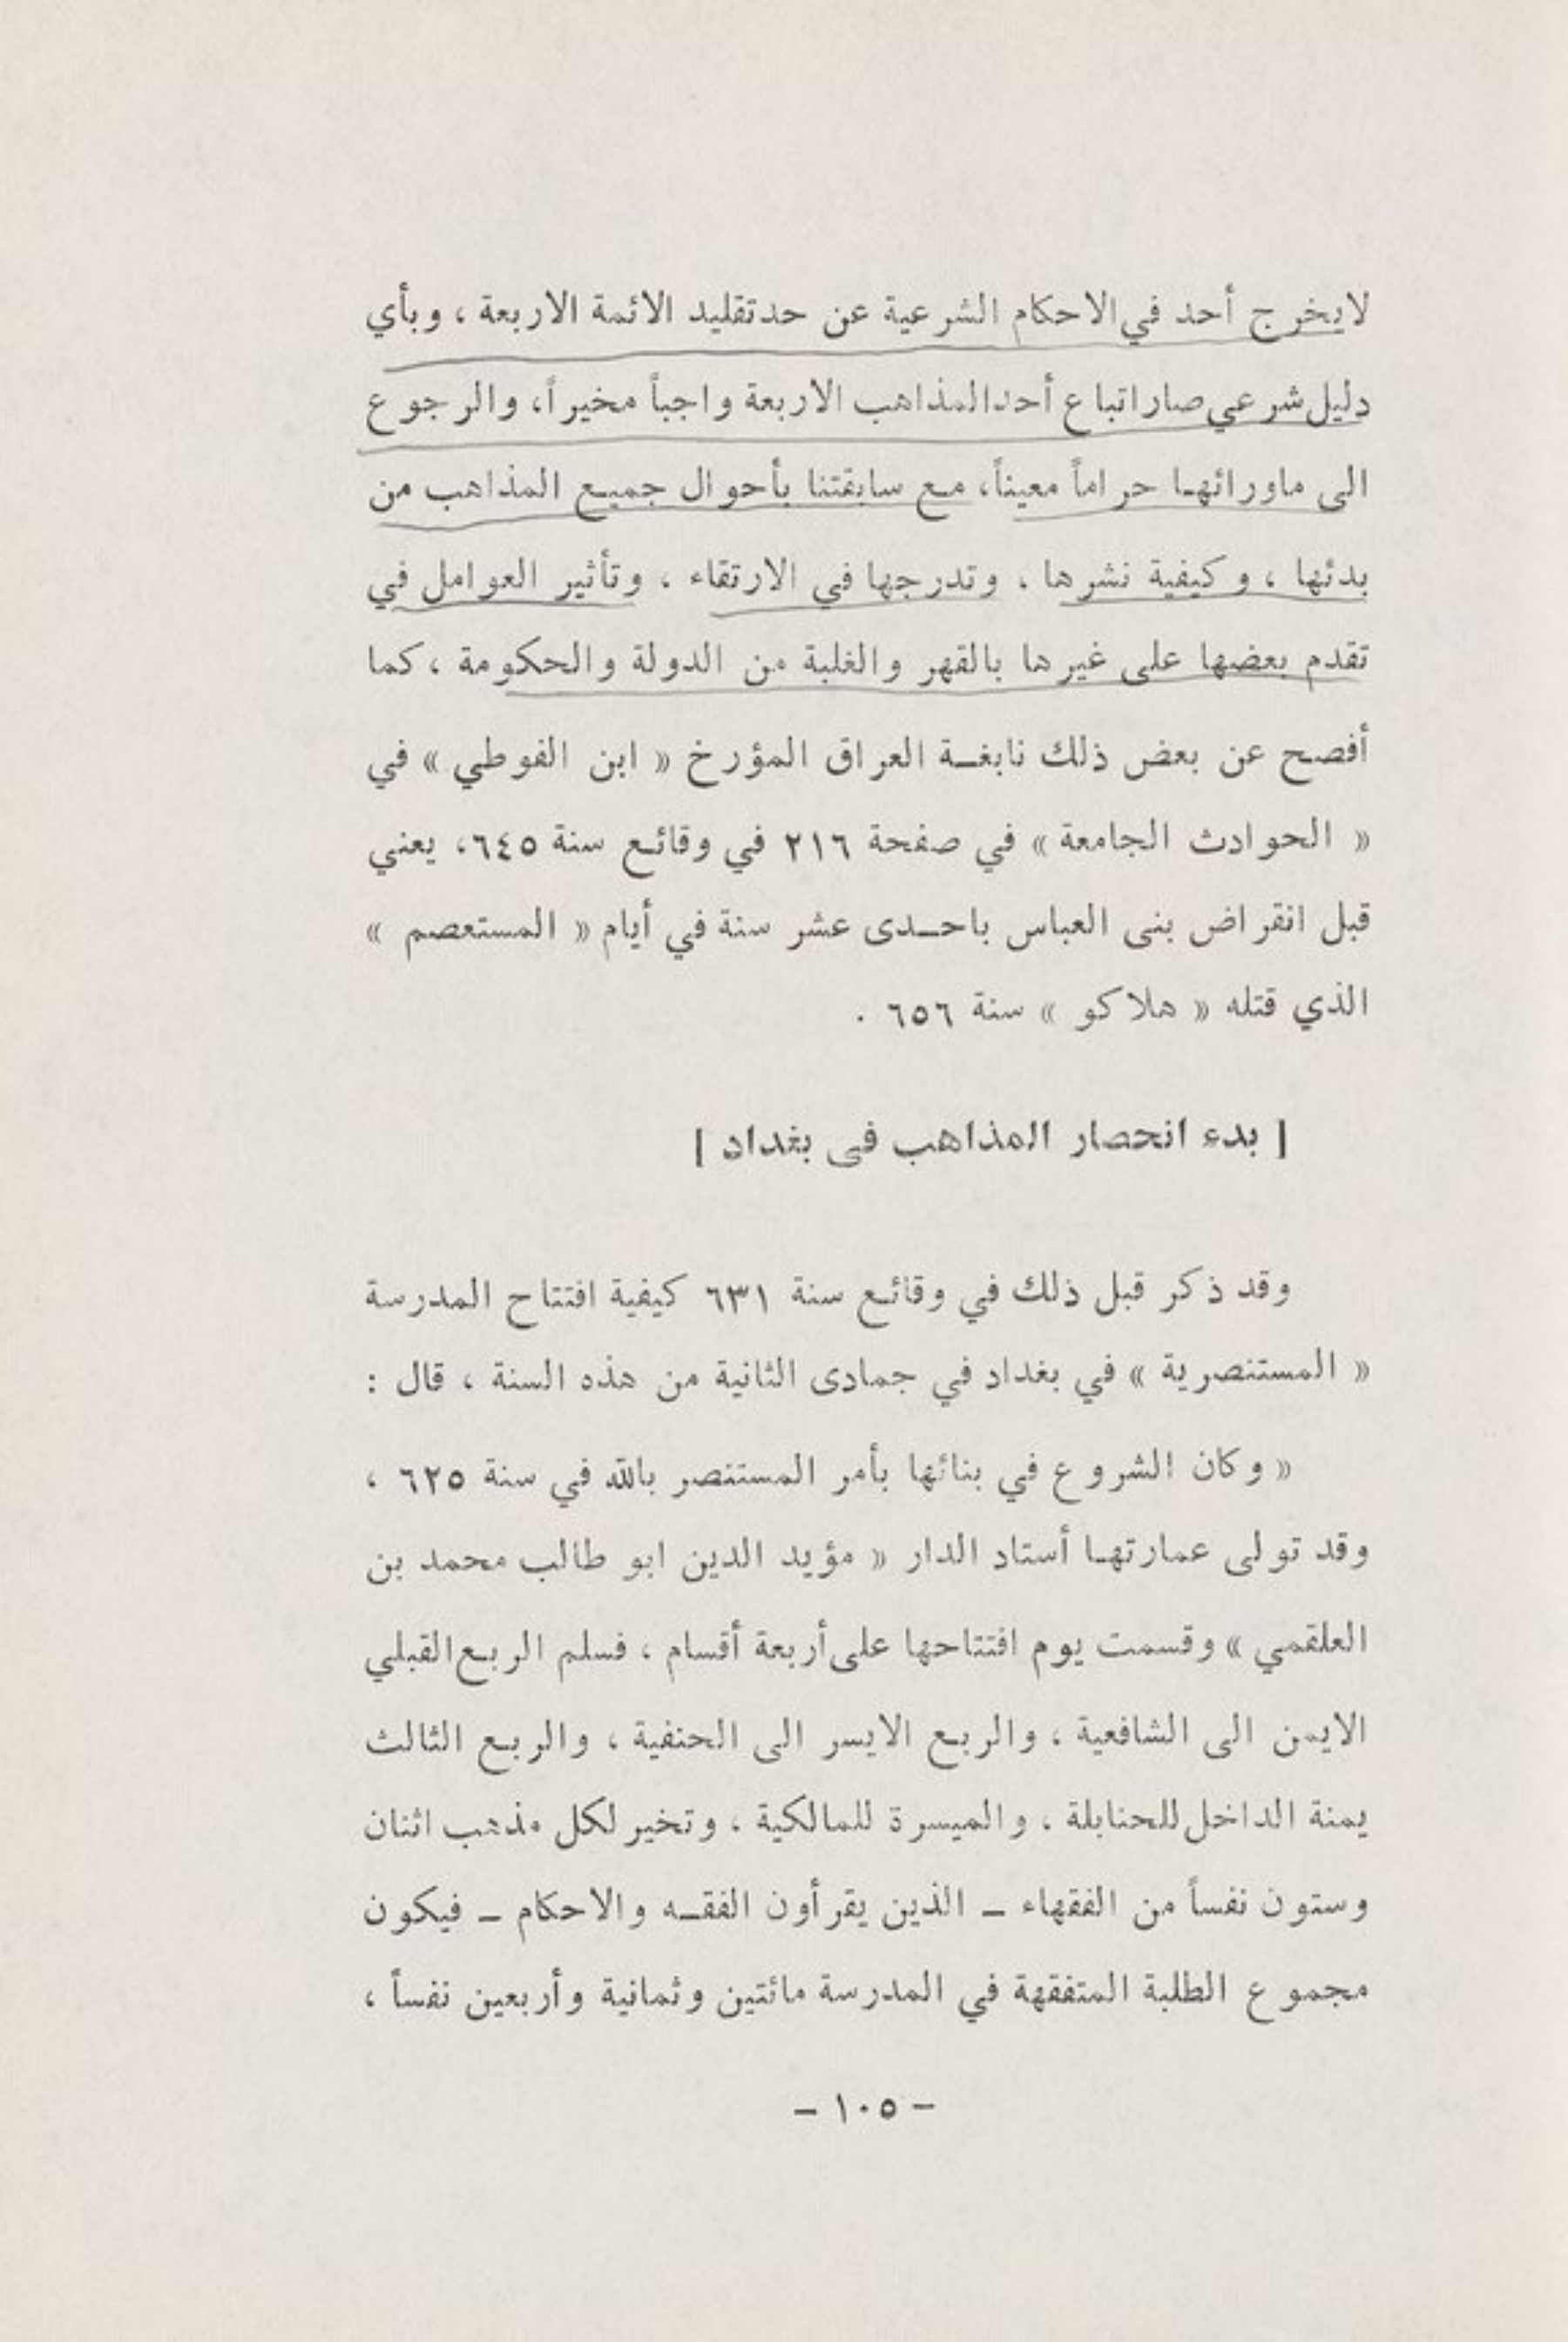 لايخرج أحد في الاحكام الشرعية عن حد تقليد الائمة الاربعة ، وبأي
دليل شرعي صار اتباع أحد المذاهب الاربعة واجباً مخيراً، والرجوع
الى ماورائها حراماً معيناً، مع سابقتنا بأحوال جميع المذاهب من
بدئها ، وكيفية نشرها ، وتدرجها في الارتقاء ، وتأثير العوامل في
تقدم بعضها على غيرها بالقهر والغلبة من الدولة والحكومة ، كما
أفصح عن بعض ذلك نابغة العراق المؤرخ « ابن الفوطي » في
« الحوادث الجامعة » في صفحة ٢١٦ في وقائع سنة ٦٤٥، يعني
قبل انقراض بنى العباس باحدى عشر سنة في أيام « المستعصم »
الذي قتله « هلاكو » سنة ٦٥٦ .
[ بدء انحصار المذاهب فى بغداد ]
وقد ذكر قبل ذلك في وقائع سنة ٦٣١ كيفية افتتاح المدرسة
« المستنصرية » في بغداد في جمادى الثانية من هذه السنة ، قال :
« وكان الشروع في بنائها بأمر المستنصر بالله في سنة ٦٢٥ ،
وقد تولى عمارتها أستاد الدار « مؤيد الدين ابو طالب محمد بن
العلقمي » وقسمت يوم افتتاحها على أربعة أقسام ، فسلم الربع القبلي
الايمن الى الشافعية ، والربع الايسر الى الحنفية ، والربع الثالث
يمنة الداخل للحنابلة ، والميسرة للمالكية ، وتخير لكل مذهب اثنان
وستون نفساً من الفقهاء ـ الذين يقرأون الفقه والاحكام ـ فيكون
مجموع الطلبة المتفقهة في المدرسة مائتين وثمانية وأربعين نفساً ،
– ١٠٥ –